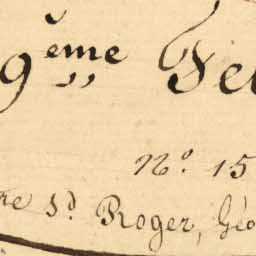 9ème Fe
N.o 15
re Sd. Roger, Géo